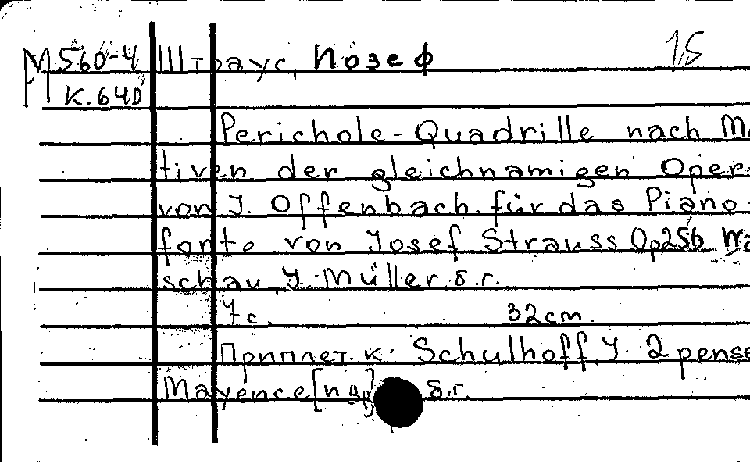 М 560-4 Штраус, Йозеф 15
К.640
Perichole-Quadrille nach Mo
tiven der gleichnamigen Oper
von J. Offenbach für das Piano-
forte von Josef Strauss Op256 Wa
schau, J. Müller, б.г.
7 с. 32cm.
Приплет. к: Schulhoff, J. 2 pense
Mayence б.г.